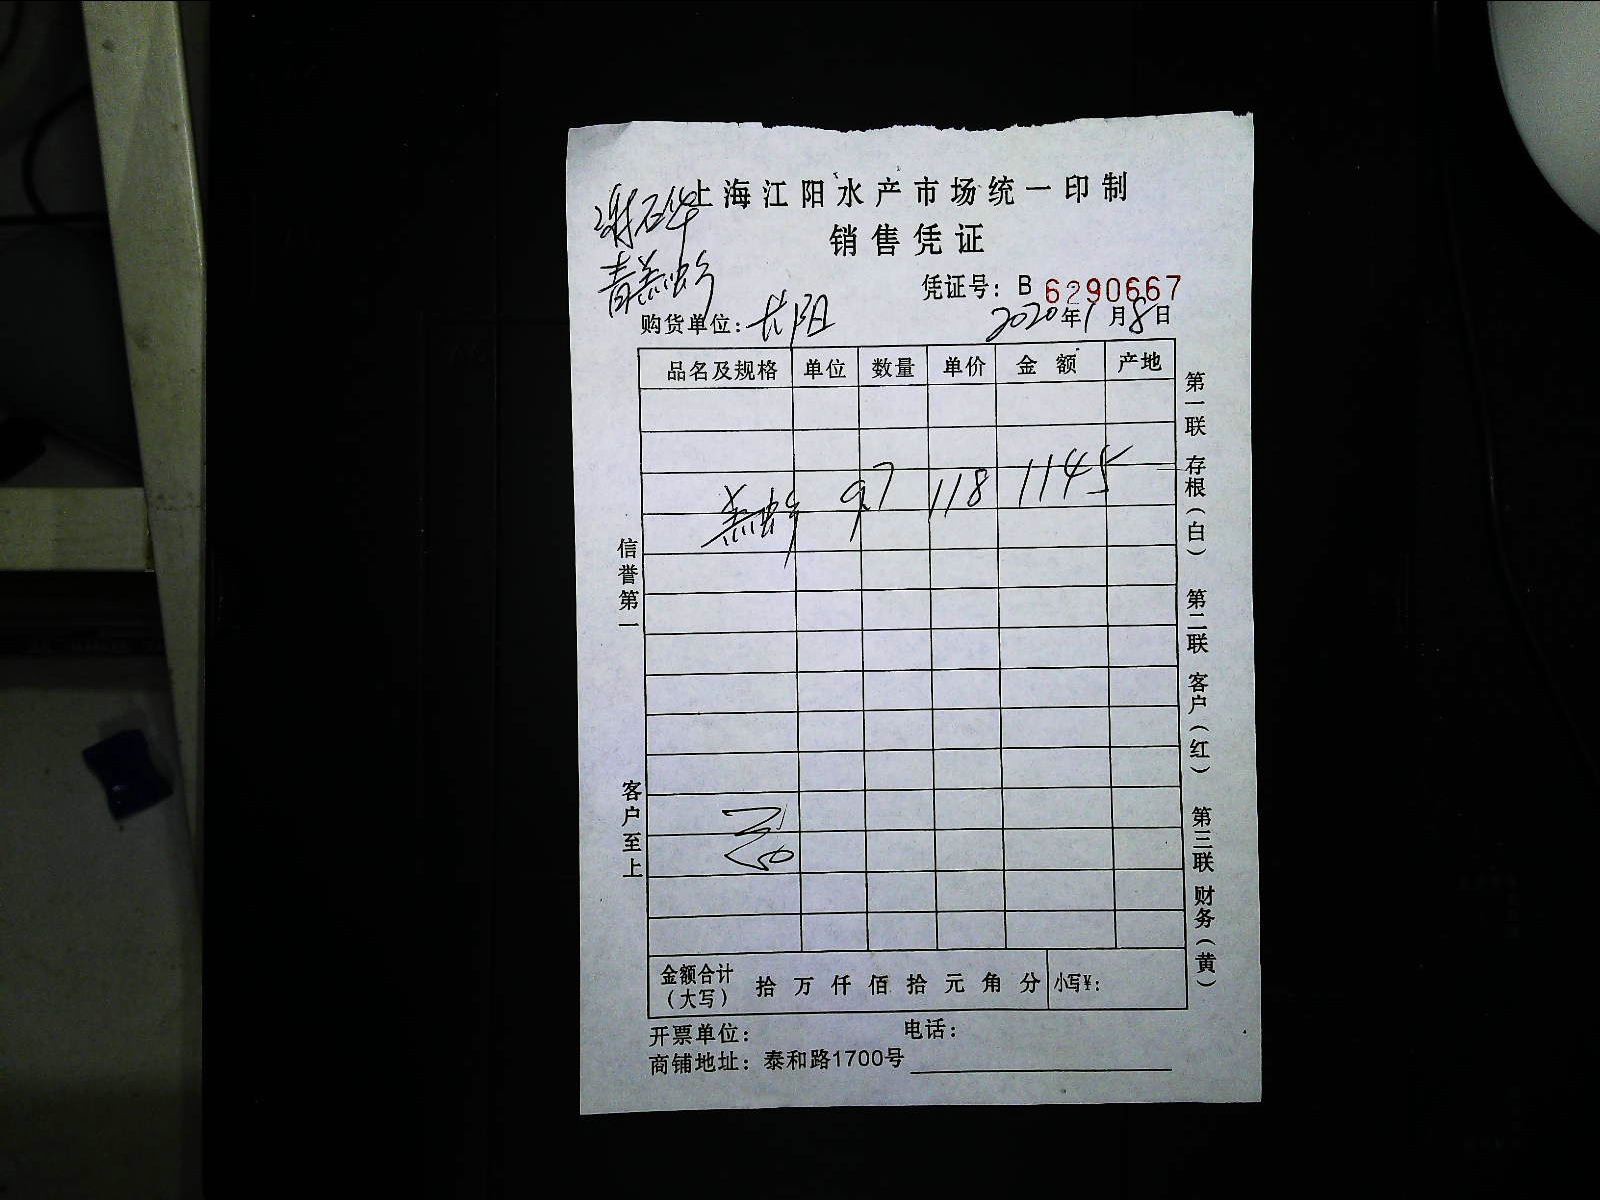 上海江阳水产市场统一印制
谢石华
销售凭证
青羔蚧
凭证号：B 6290667
购货单位：长阳 2020年1月8日
品名及规格 单位 数量 单价 金额 产地
羔蚧 9.7 118 1145
信誉第一
客户至上
第一联 存根（白） 第二联 客户（红） 第三联 财务（黄）
金额合计（大写） 拾万仟佰拾元角分 小写¥：
开票单位： 电话：
商铺地址：泰和路1700号